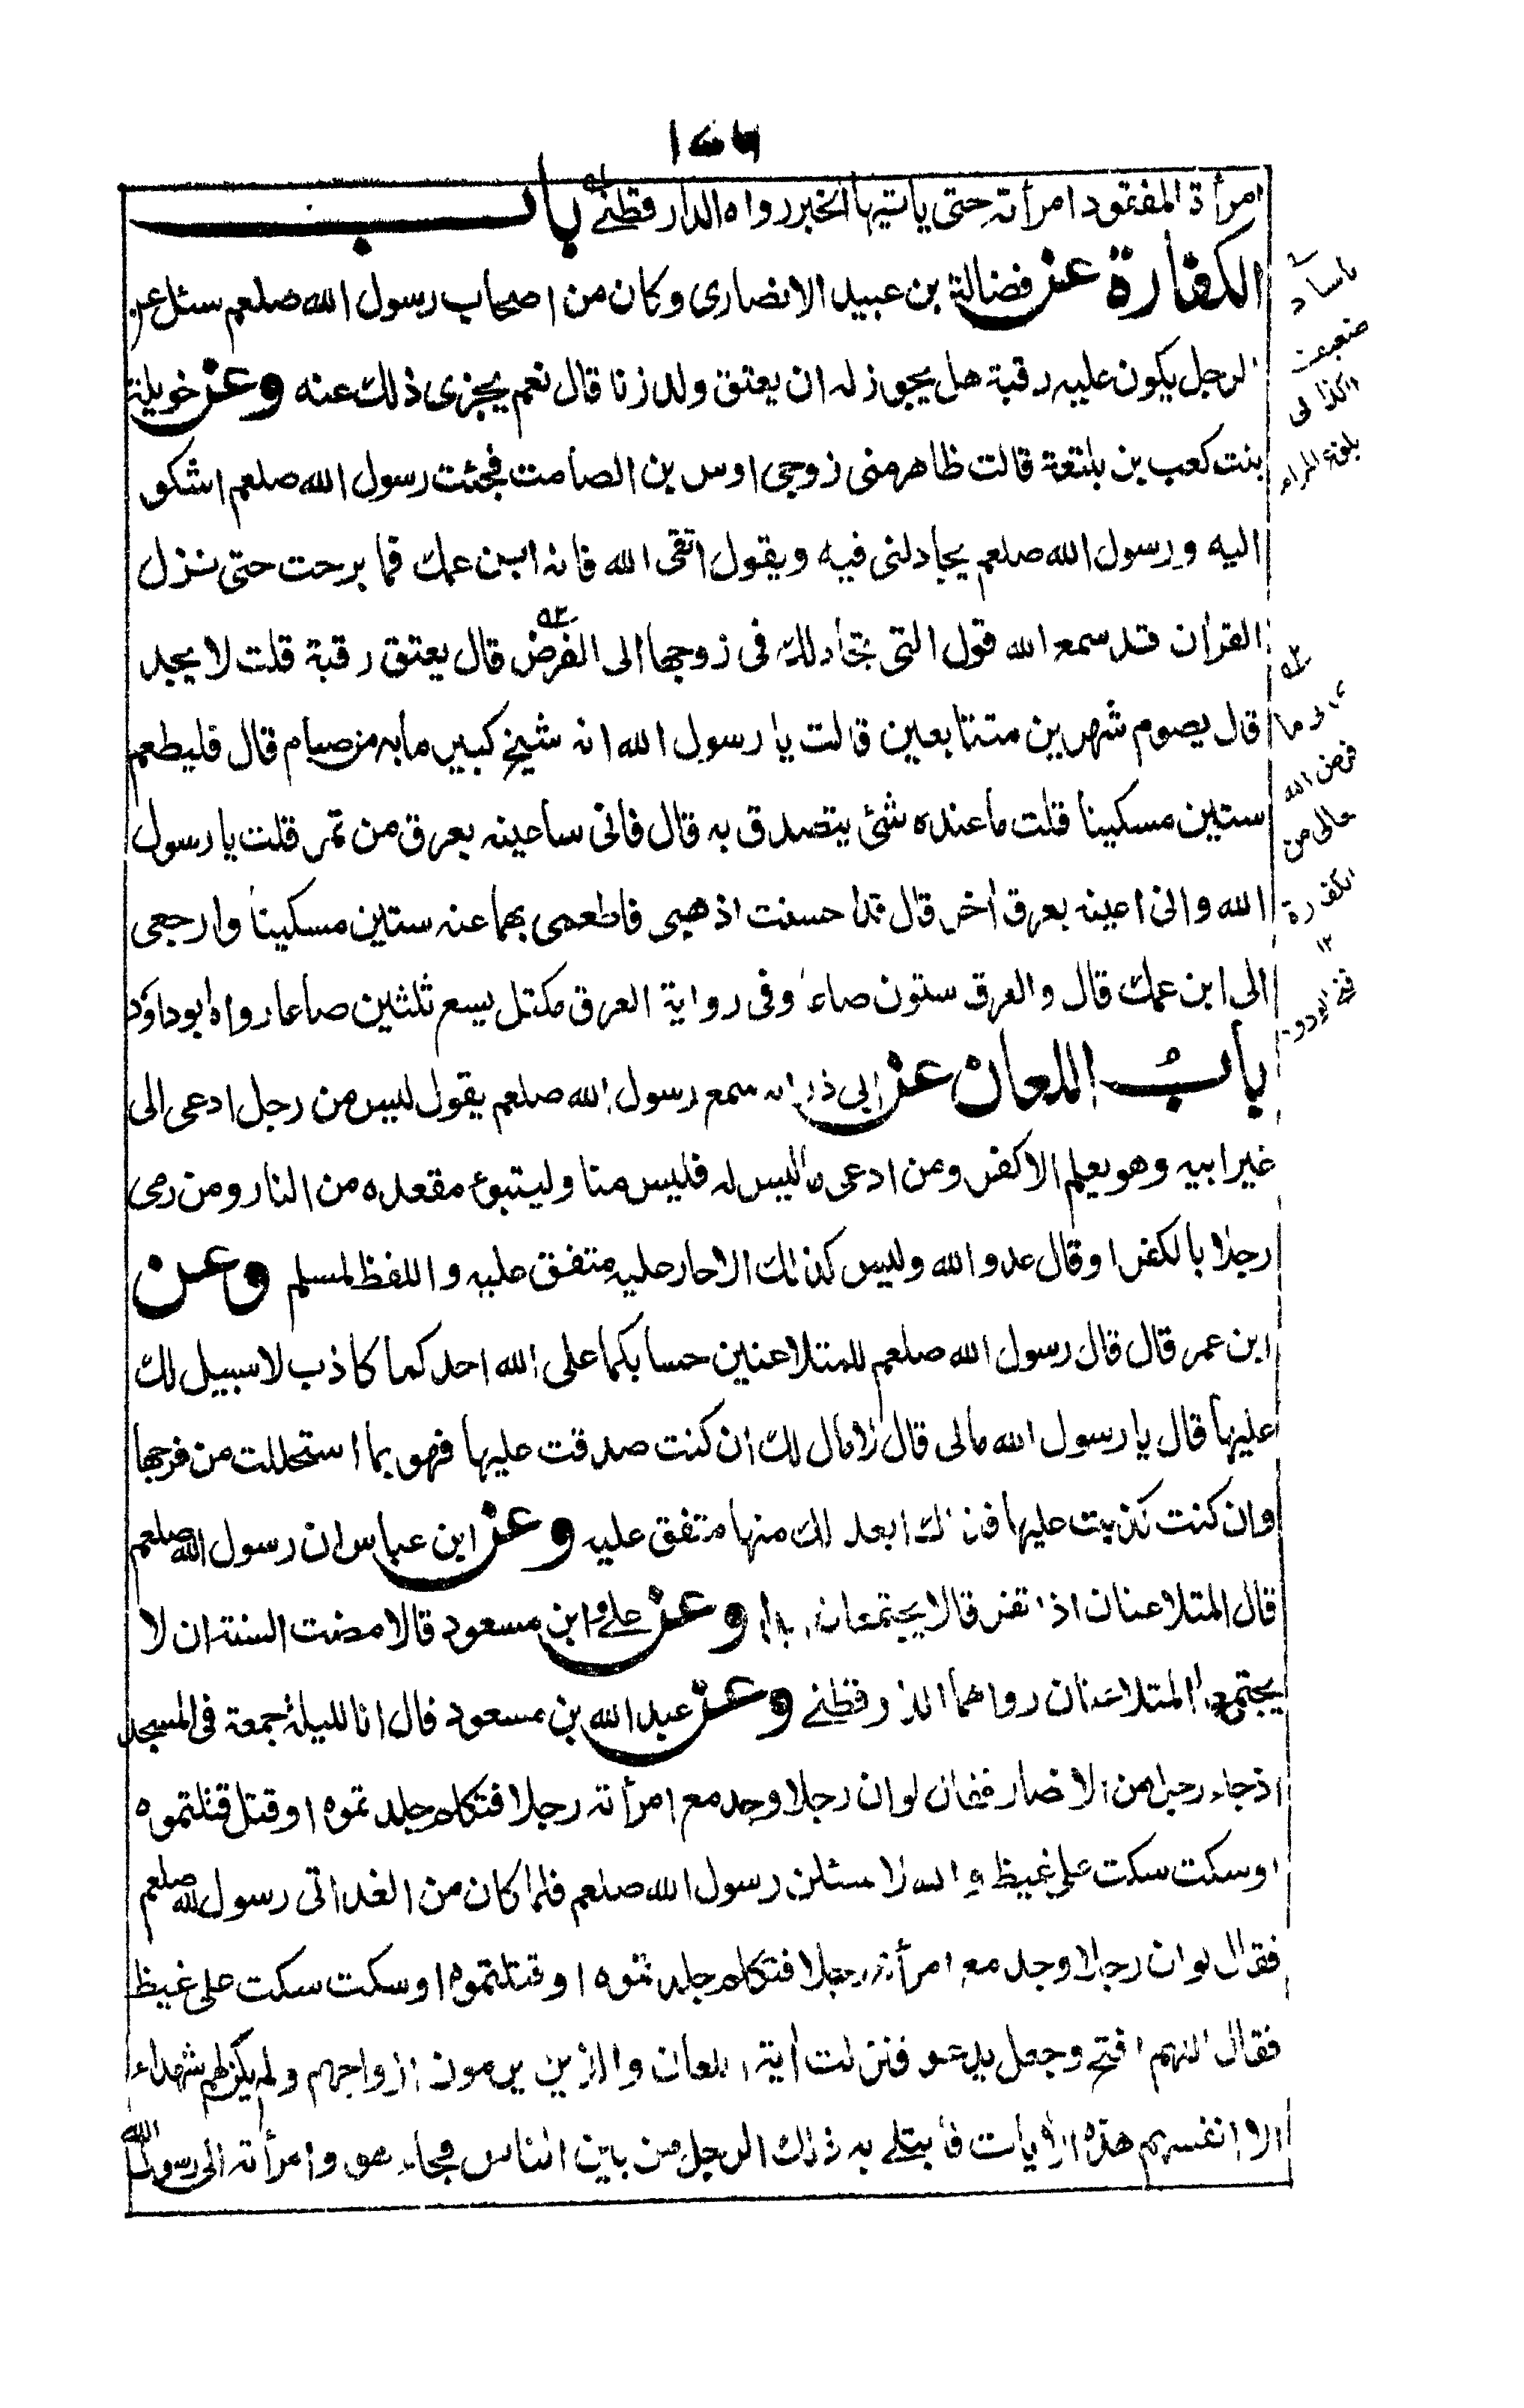 ١٥٦
امرأة المفقود امرأته حتى ياتيها الخبر رواه الدارقطنے باب
الكفارة عن فضالة بن عبيد الانصارى وكان من اصحاب رسول الله صلعم سئل عن
الرجل يكون عليه رقبة هل يجوز له ان يعتق ولد زنا قال نعم يجزى ذلك عنه وعن خويلة
بنت كعب بن بلتعة قالت ظاهر منى زوجى اوس بن الصامت فجئت رسول الله صلعم اشكو
اليه ورسول الله صلعم يجادلنى فيه ويقول اتقى الله فانه ابن عمك فما برحت حتى نزل
القرأن قد سمع الله قول التى تجادلك فى زوجها الى الفرض قال يعتق رقبة قلت لا يجد
قال يصوم شهرين متتابعين قالت يا رسول الله انه شيخ كبير ما به من صيام قال فليطعم
ستين مسكينا قلت ما عنده شئ يتصدق به قال فانى ساعينه بعرق من تمر قلت يا رسول
الله وانى اعينه بعرق أخر قال قد احسنت اذهبى فاطعمى بهما عنه ستين مسكينا وارجعى
الى ابن عمك قال والعرق ستون صاعا وفى رواية العرق مكتل يسع ثلثين صاعا رواه ابوداؤد
باب اللعان عن ابى ذر انه سمع رسول الله صلعم يقول ليس من رجل ادعى الى
غير ابيه وهو يعلم الا كفر ومن ادعى ما ليس له فليس منا وليتبوء مقعده من النار ومن رمى
رجلا بالكفر او قال عدو الله وليس كذلك الا حار عليه متفق عليه واللفظ لمسلم وعن
ابن عمر قال قال رسول الله صلعم للمتلاعنين حسابكما على الله احدكما كاذب لا سبيل لك
عليها قال يا رسول الله مالى قال لا مال لك ان كنت صدقت عليها فهو بما استحللت من فرجها
وان كنت كذبت عليها فذلك ابعد لك منها متفق عليه وعن ابن عباس ان رسول الله صلعم
قال المتلاعنان اذا تفرقا لا يجتمعان ابدا وعن على وابن مسعود قالا مضت السنة ان لا
يجتمع المتلاعنان رواهما الدارقطنے وعن عبد الله بن مسعود قال انا لليلة جمعة فى المسجد
اذ جاء رجل من الانصار فقال لو ان رجلا وجد مع امرأته رجلا فتكلم جلدتموه او قتل قتلتموه
او سكت سكت على غيظ والله لاسئلن رسول الله صلعم فلما كان من الغد اتى رسول الله صلعم
فقال لو ان رجلا وجد مع امرأته رجلا فتكلم جلدتموه او قتلتموه او سكت سكت على غيظ
فقال اللهم افتح وجعل يدعو فنزلت أية اللعان والذين يرمون ازواجهم ولم يكن لهم شهداء
الا انفسهم هذه الأيات فابتلے به ذلك الرجل من بين الناس فجاء هو وامرأته الى رسول الله
باسناد
ضعيف
اى ما
فرض الله
تعالى من
الكفارة
١٢